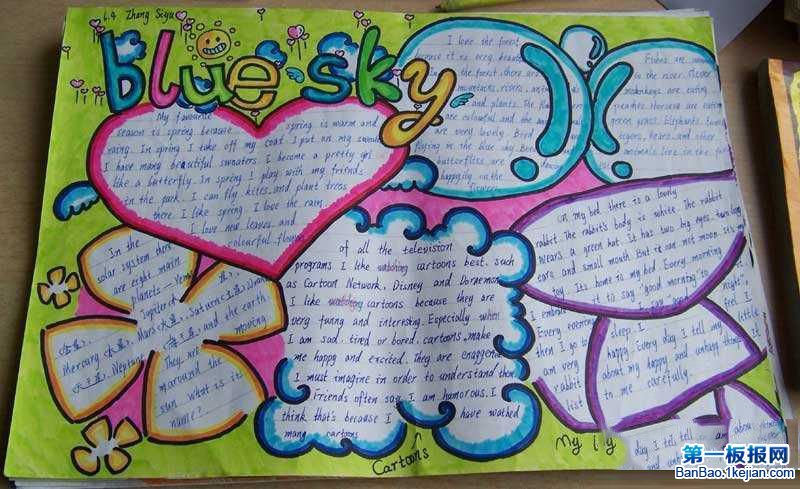 6.4 Zhang Siyu
blue sky
My favourite
season is spring because spring is warm and
raing. In spring I take off my coat. I put on my sweater
I have many beautiful sweaters. I become a pretty girl
like a butterfly. In spring I play with my friends
in the park. I can fly kites, and plant tress
there I like spring. I love the rain
I love new leaves and
colourful flowers
I love the forest
because it is very beautiful
the forest, there are
mountains, rivers,
and plants. The
are colourful and the
are very lovely. Bird
flying in the blue sky
butterflies are dancing
happily in the
flowers
Fishes are
in the river. Clever
monkeys are eating
peaches. Horses are eating
green grass. Elephants,
tigers, bears and other
animals live in the
In the
solar system there
are eight main
planets—
Jupiter(木星), Saturn(土星),
(金星), Mars(火星),
Mercury (水星), and the earth
(海王星), Neptune
They are moving
maround the
sun. What is its
name?
of all the television
programs I like watching cartoons best, such
as Cartoon Network, Disney and Doraemon
I like watching cartoons because they are
very funny and interesting. Especially when
I am sad, tired or bored, cartoons make
me happy and excited. They are enaggena
I must imagine in order to understand them
Friends often say I am homorous. I
think that's because I have wathed
many cartoons
Cartoons
On my bed there is a lovely
rabbit. The rabbit's body is white. The rabbit
wears a green hat. It has two big eyes, two long
ears and small mouth. But it can not moon, it's my
toy. It's home is my bed. Every morning
I embrace it to say "good morning" to
Every evening
sleep. I
then I go to
happy. Every day I tell my
am very
about my happy and unhappy things
rabbit
to me carefully.
list
night",
feel I
little
it
My
day I tell
am about
第一板报网
BanBao.1kejian.com